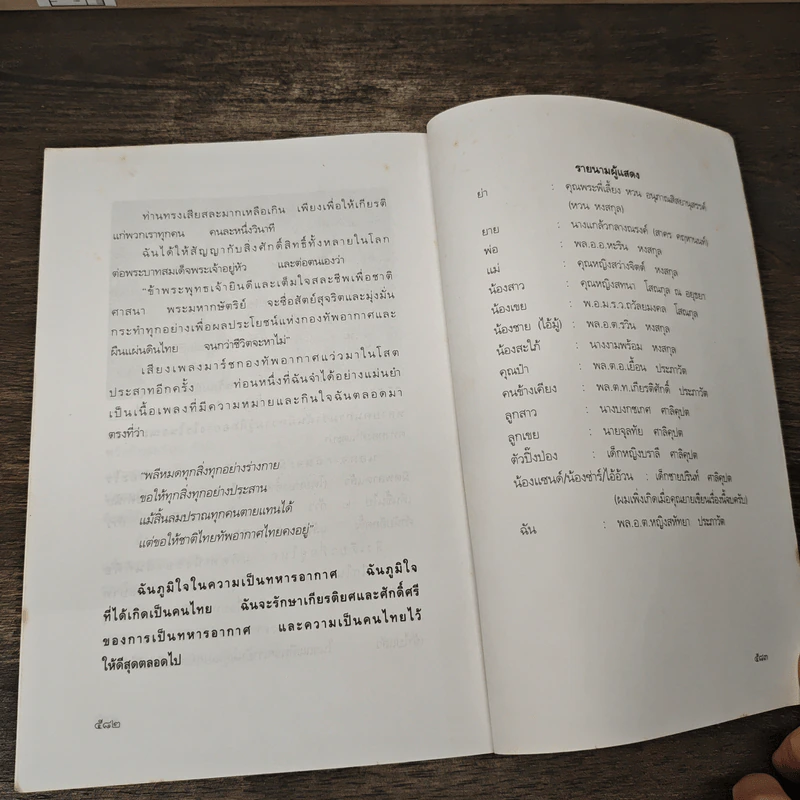 ท่านทรงเสียสละมากเหลือเกิน เพียงเพื่อให้เกียรติ
แก่พวกเราทุกคน คนละหนึ่งวินาที
ฉันได้ให้สัญญากับสิ่งศักดิ์สิทธิ์ทั้งหลายในโลก
ต่อพระบาทสมเด็จพระเจ้าอยู่หัว และต่อตนเองว่า
"ข้าพระพุทธเจ้ายินดีและเต็มใจสละชีพเพื่อชาติ
ศาสนา พระมหากษัตริย์ จะซื่อสัตย์สุจริตและมุ่งมั่น
กระทำทุกอย่างเพื่อผลประโยชน์แห่งกองทัพอากาศและ
ผืนแผ่นดินไทย จนกว่าชีวิตจะหาไม่"
เสียงเพลงมาร์ชกองทัพอากาศแว่วมาในโสต
ประสาทอีกครั้ง ท่อนหนึ่งที่ฉันจำได้อย่างแม่นยำ
เป็นเนื้อเพลงที่มีความหมายและกินใจฉันตลอดมา
ตรงที่ว่า
"พลีหมดทุกสิ่งทุกอย่างร่างกาย
ขอให้ทุกสิ่งทุกอย่างประสาน
แม้สิ้นลมปราณทุกคนตายแทนได้
แต่ขอให้ชาติไทยทัพอากาศไทยคงอยู่"
ฉันภูมิใจในความเป็นทหารอากาศ ฉันภูมิใจ
ที่ได้เกิดเป็นคนไทย ฉันจะรักษาเกียรติยศและศักดิ์ศรี
ของการเป็นทหารอากาศ และความเป็นคนไทยไว้
ให้ดีสุดตลอดไป
๕๘๒
รายนามผู้แสดง
ย่า : คุณพระพี่เลี้ยง หวน
(หวน หงสกุล)
ยาย : นางแกล้วกลางณรงค์
พ่อ : พล.อ.อ.หะริน หงสกุล
แม่ : คุณหญิงสว่างจิตต์ หงสกุล
น้องสาว : คุณหญิงสทนา โสณกุล ณ อยุธยา
น้องเขย : พ.อ.ม.ร.ว.ถวัลยมงคล โสณกุล
น้องชาย (ไอ้มู้) : พล.อ.ต.รวิน หงสกุล
น้องสะใภ้ : นางงามพร้อม หงสกุล
คุณป๋า : พล.ต.อ.เยื้อน ประภาวัต
คนข้างเคียง : พล.ต.ท.เกียรติศักดิ์ ประภาวัต
ลูกสาว : นางบงกชเกศ ศาลิคุปต
ลูกเขย : นายจุลทัย ศาลิคุปต
ตัวปิ๊งป่อง : เด็กหญิงบราลี ศาลิคุปต
น้องแซนด์/น้องซ่าร์/ไอ้อ้วน : เด็กชายปรินท์ ศาลิคุปต
(ผมเพิ่งเกิดเมื่อคุณยายเขียนเรื่องนี้จบครับ)
ฉัน : พล.อ.ต.หญิงสทัทยา ประภาวัต
๕๘๓